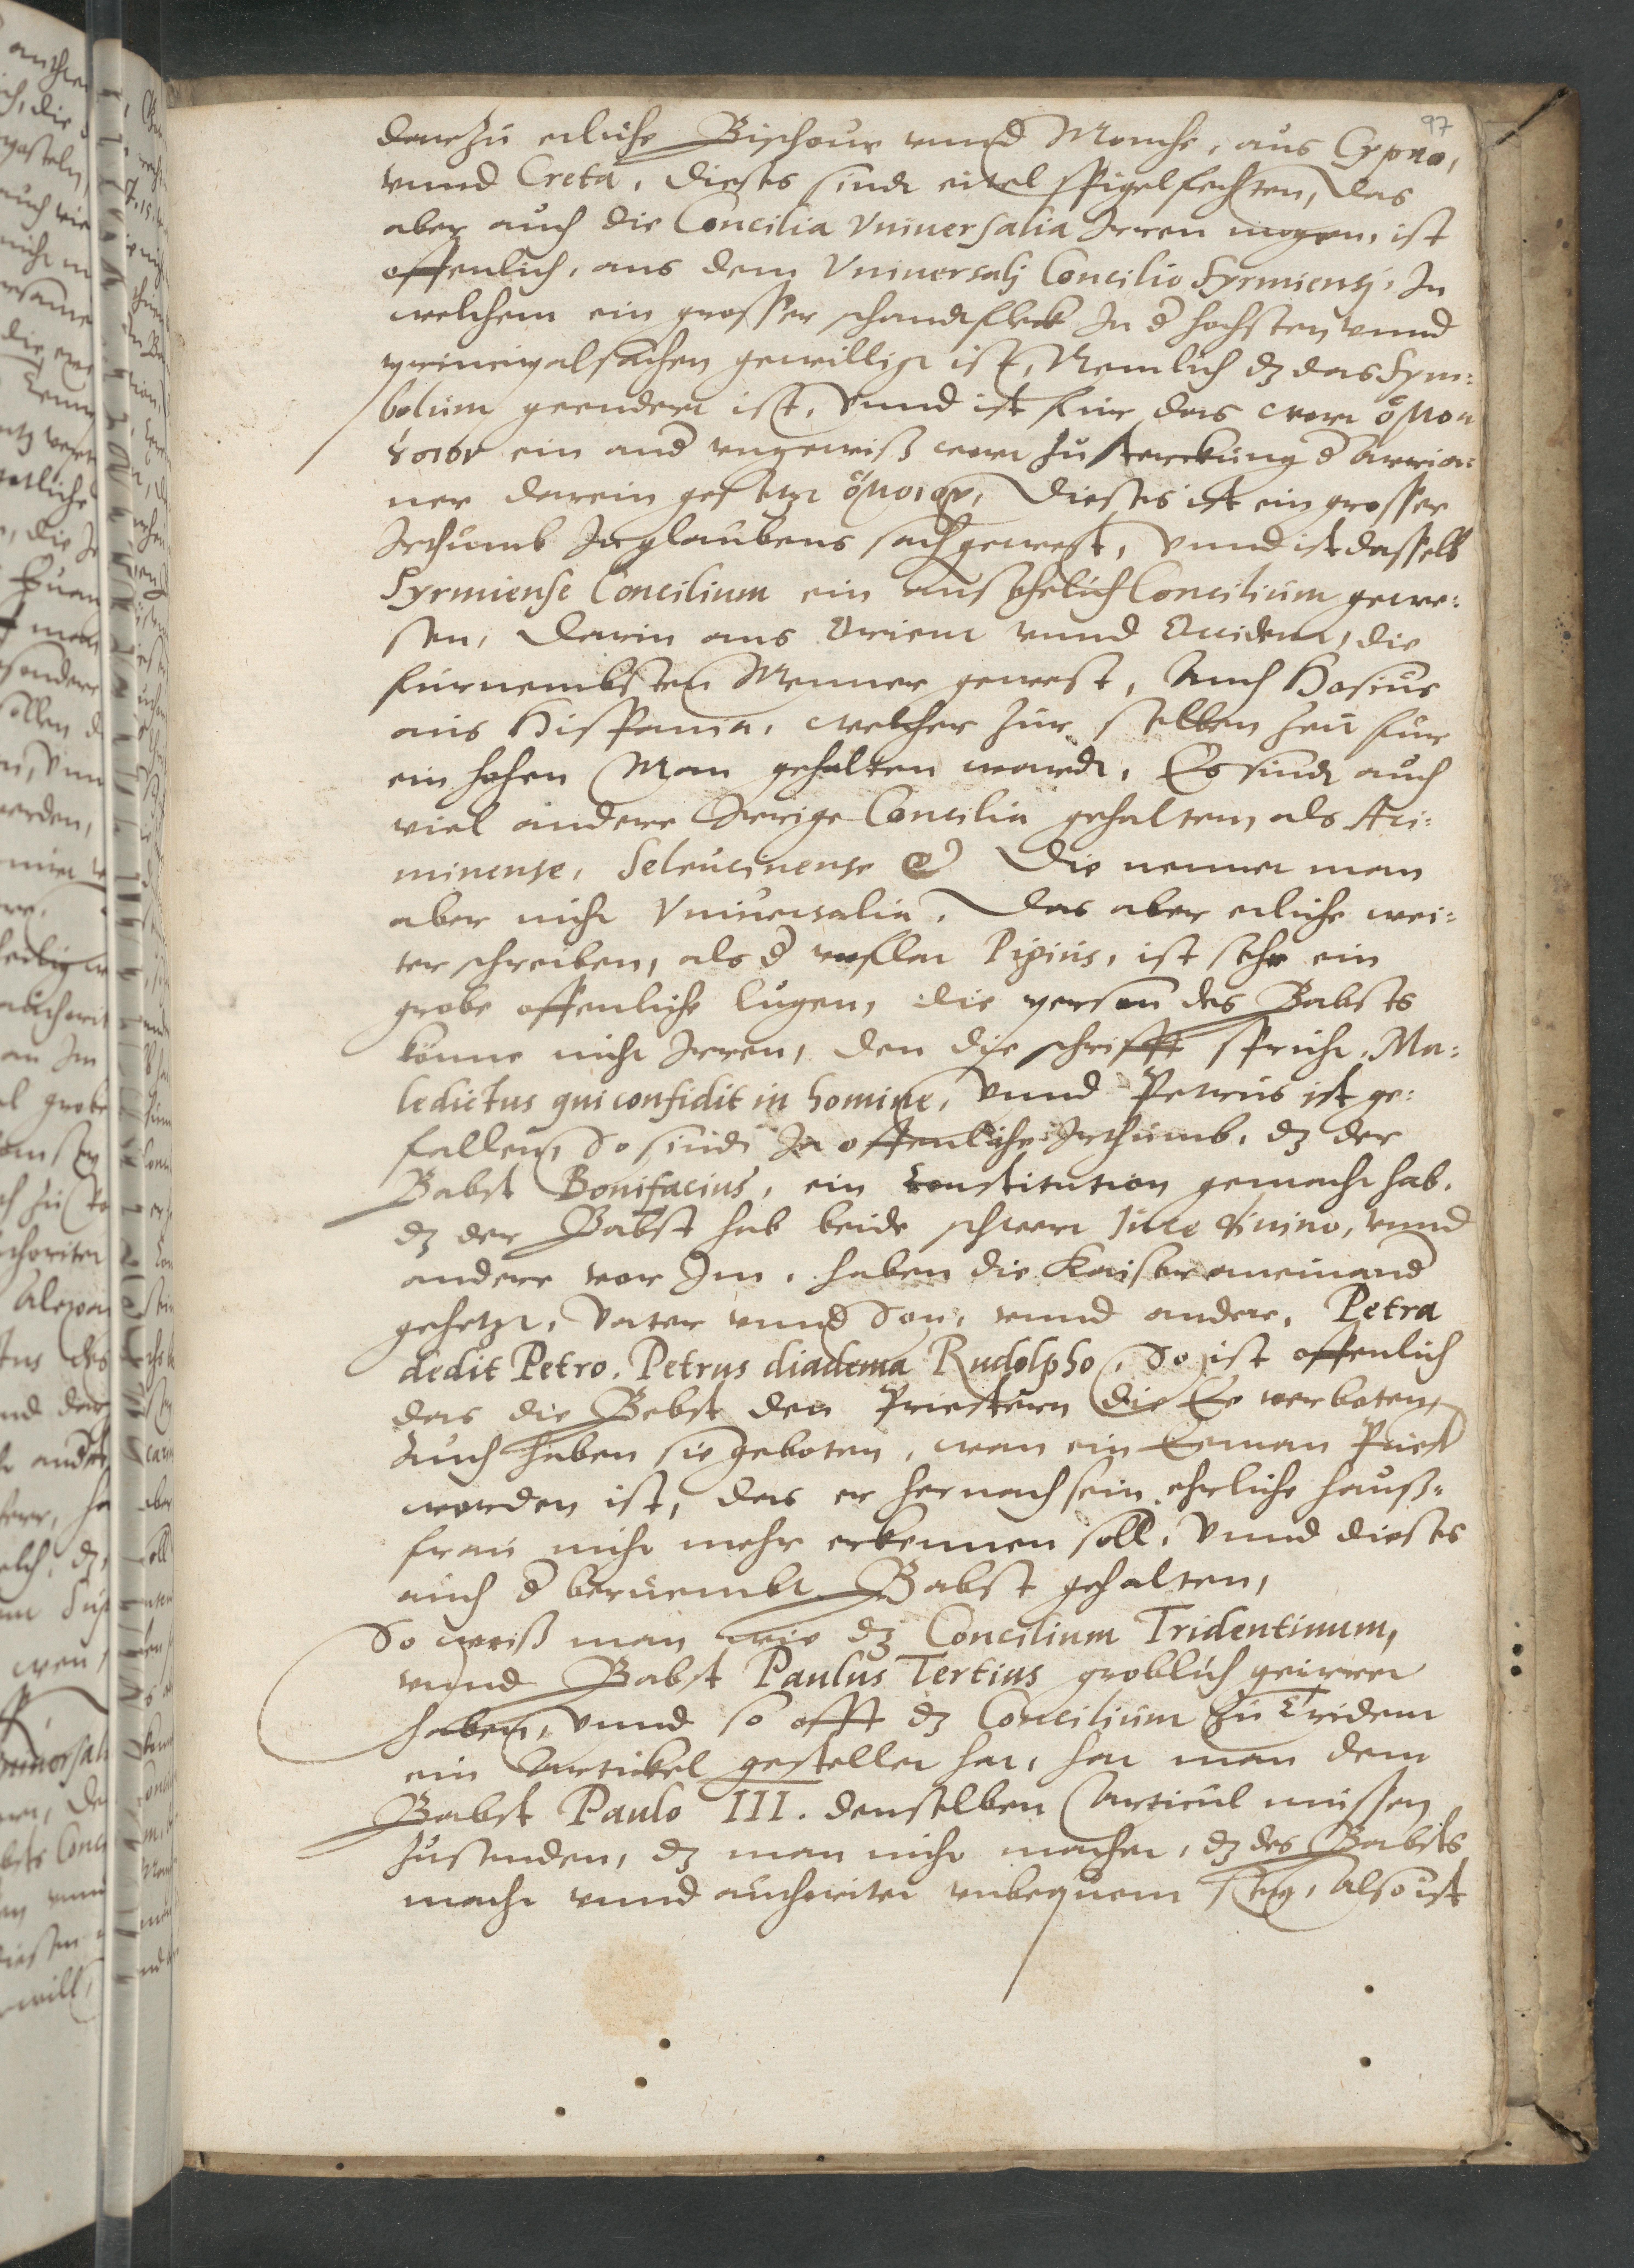 97
darzu etliche Bischoue vnnd Monche, aus Cypro,
vnnd Creta, dieses sindt eitel spigelfechten, das
aber auch die Concilia Vniuersalia Irren mogen, ist
offenlich, aus dem Vniuersalj Concilio Syrmiensj, In
welchem ein grosser schandtfleck In d hochsten vnnd
principalsachen gewilligt ist, Nemlich dz das Sym:
bolum geendert ist, Vnnd ist fur das wort ὁμοου
σιον ein and vngewiß wort zu sterckung d Arria:
ner darein gesetzt ὅμοιον, Dieses ist ein grosser
Irthumb In glaubens sach gewest, Vnnd ist dasselb
Syrmiense Concilium ein ansehelich Concilium gewe:
sen, darin aus Orient vnnd Occident, die
furnembsten Menner gewest, Auch Hosius
aus Hispania, welcher zur selben zeit fur
ein hohen Man gehalten wardt, Es sindt auch
viel andere Irrige Concilia gehalten als Ari:
minense, Seleucinense &c Die nennet man
aber nicht Vniuersalia. Das aber etliche wei:
ter schreiben, als d vnflat Pigius, ist sehr ein
grobe offenliche lugen, die person des Babsts
könne nicht Irren, den die schrifft spricht, Ma:
ledictus qui confidit in homine, Vnnd Petrus ist ge:
fallen, So sindt In offenliche Irthumb, dz der
Babst Bonifacius, ein constitution gemacht hab,
dz der Babst hab beide schwert Jure diuino, vnnd
andere vor Im, haben die Kaiser aneinand
gehetzt, Vater vnnd Son, vnnd andere, Petra
dedit Petro, Petrus diadema Rudolpho, So ist offenlich
das die Bebst den Priestern die Ee verboten,
Auch haben sie geboten, wan ein Eeman Priest
worden ist, das er hernach sein ehrliche hauß-
frau nicht mehr erkennen soll, Vnnd dieses
auch d berümbt Babst gehalten,
So weiß man wie dz Concilium Tridentinum,
vnnd Babst Paulus Tertius groblich geirret
haben, Vnnd so offt dz Concilium zu Trident
ein Artickel gestellet hat, hat man dem
Babst Paulo III. denselben Articul mussen
zusenden, dz man nicht machet, dz des Babsts
macht vnnd authoritet vnbequem sey, Also ist